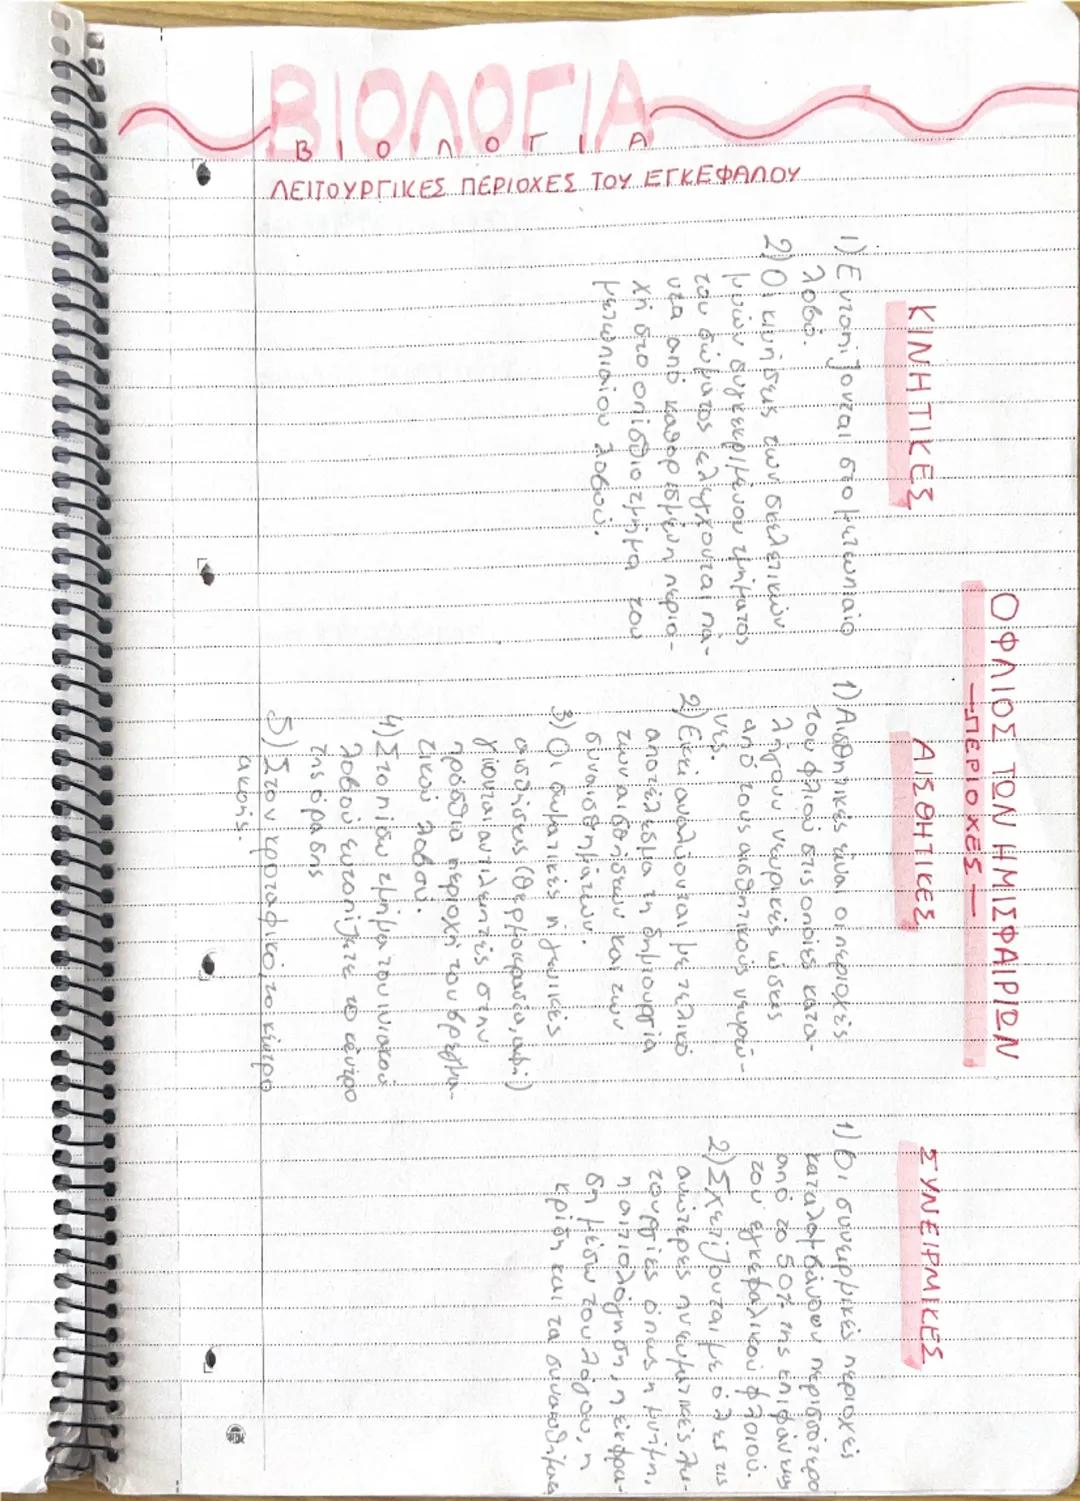 ΒΙΟΛΟΓΙΑ
ΒΙΟΛΟΓΙΑ
ΛΕΙΤΟΥΡΓΙΚΕΣ ΠΕΡΙΟΧΕΣ ΤΟΥ ΕΓΚΕΦΑΛΟΥ
ΟΦΛΙΟΣ ΤΩΝ ΗΜΙΣΦΑΙΡΙΩΝ
—ΠΕΡΙΟΧΕΣ—
ΚΙΝΗΤΙΚΕΣ
1) Εντοπίζονται στο μετωπιαίο
λοβό.
2) Οι κινήσεις των σκελετικών
μυών συγκεκριμένου τμήματος
του σώματος ελέγχονται πά-
ντα από καθορισμένη περιο-
χή στο οπίσθιο τμήμα του
μετωπιαίου λοβού.
ΑΙΣΘΗΤΙΚΕΣ
1) Αισθητικές είναι οι περιοχές
του φλοιού στις οποίες κατα-
λήγουν νευρικές ώσεις
από τους αισθητικούς νευρώ-
νες.
2) Εκεί αναλύονται με τελικό
αποτέλεσμα τη δημιουργία
των αισθήσεων και των
συναισθημάτων.
3) Οι σωματικές ή γενικές
αισθήσεις (θερμοκρασία, αφή)
γίνονται αντιληπτές στην
πρόσθια περιοχή του βρεγμα-
τικού λοβού.
4) Στο πίσω τμήμα του ινιακού
λοβού εντοπίζετε το κέντρο
της όρασης
5) Στον κροταφικό, το κέντρο
ακοής.
ΣΥΝΕΙΡΜΙΚΕΣ
1) Οι συνειρμικές περιοχές
καταλαμβάνουν περισσότερο
από το 50% της επιφάνειας
του εγκεφαλικού φλοιού.
2) Σχετίζονται με όλες τις
ανώτερες πνευματικές λει-
τουργίες όπως η μνήμη,
η αιτιολόγηση, η έκφρα-
ση μέσω του λόγου, η
κρίση και τα συναισθήματα